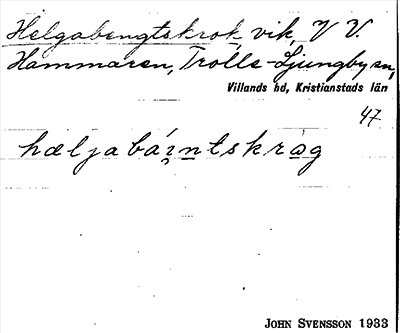 Helgabengtskrok vik, V V.
Hammaren, Trolle-Ljungby sn,
Villands hd, Kristianstads län
47
hæljabáintskråg
JOHN SVENSSON 1933